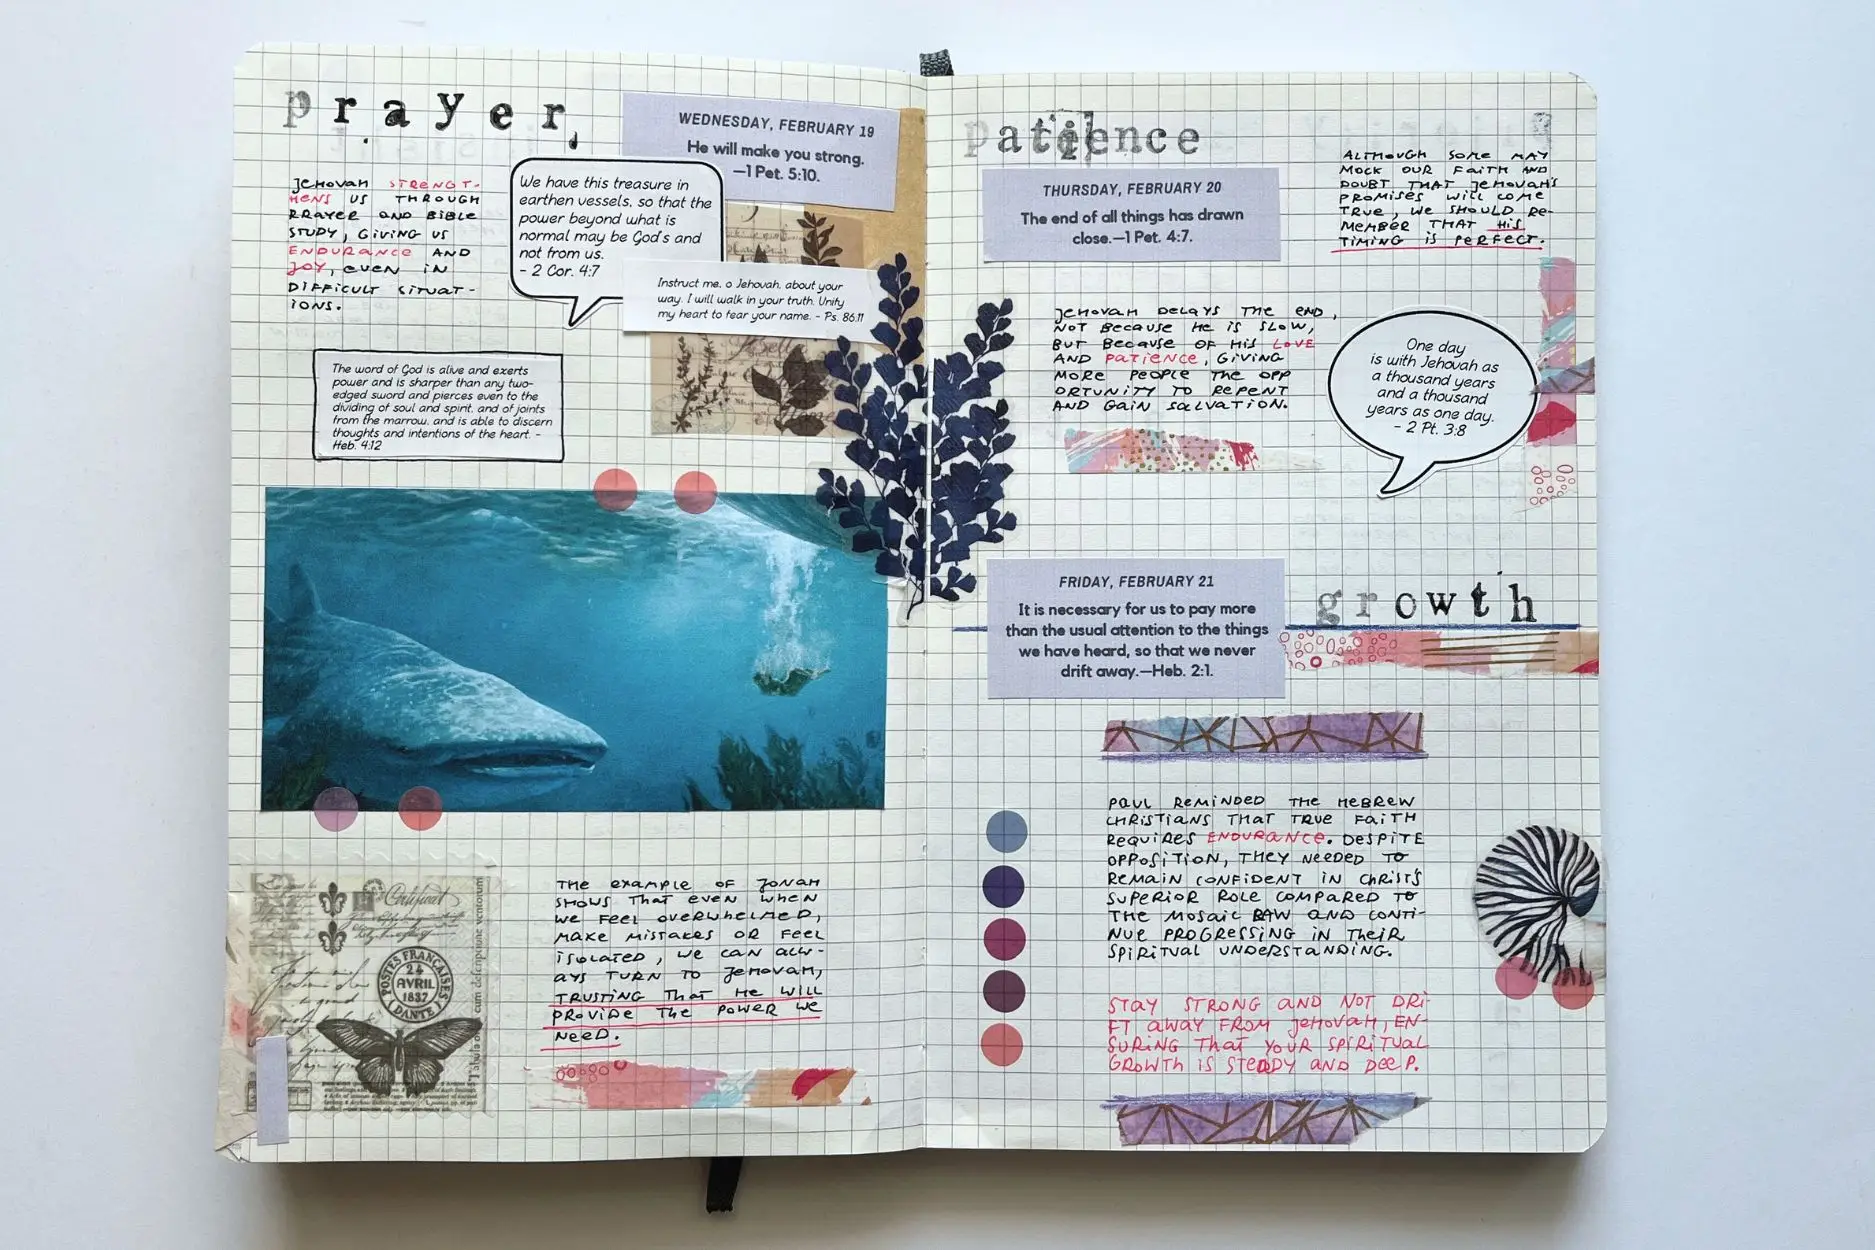 prayer
WEDNESDAY, FEBRUARY 19
He will make you strong.
—1 Pet. 5:10.
JEHOVAH STRENGT-
HENS US THROUGH
PRAYER AND BIBLE
STUDY, GIVING US
ENDURANCE AND
JOY, EVEN IN
DIFFICULT SITUAT-
IONS.
We have this treasure in
earthen vessels, so that the
power beyond what is
normal may be God's and
not from us.
- 2 Cor. 4:7
Instruct me, o Jehovah, about your
way. I will walk in your truth. Unify
my heart to fear your name. - Ps. 86:11
The word of God is alive and exerts
power and is sharper than any two-
edged sword and pierces even to the
dividing of soul and spirit, and of joints
from the marrow, and is able to discern
thoughts and intentions of the heart. -
Heb. 4:12
THE EXAMPLE OF JONAH
SHOWS THAT EVEN WHEN
WE FEEL OVERWHELMED,
MAKE MISTAKES OR FEEL
ISOLATED, WE CAN ALW-
AYS TURN TO JEHOVAH,
TRUSTING THAT HE WILL
PROVIDE THE POWER WE
NEED.
Certificat
POSTES FRANCAISES
24
AVRIL
1837
DANTE
patience
THURSDAY, FEBRUARY 20
The end of all things has drawn
close.—1 Pet. 4:7.
ALTHOUGH SOME MAY
MOCK OUR FAITH AND
DOUBT THAT JEHOVAH'S
PROMISES WILL COME
TRUE, WE SHOULD RE-
MEMBER THAT HIS
TIMING IS PERFECT.
JEHOVAH DELAYS THE END,
NOT BECAUSE HE IS SLOW,
BUT BECAUSE OF HIS LOVE
AND PATIENCE, GIVING
MORE PEOPLE THE OPP
ORTUNITY TO REPENT
AND GAIN SALVATION.
One day
is with Jehovah as
a thousand years
and a thousand
years as one day.
- 2 Pt. 3:8
growth
FRIDAY, FEBRUARY 21
It is necessary for us to pay more
than the usual attention to the things
we have heard, so that we never
drift away.—Heb. 2:1.
PAUL REMINDED THE HEBREW
CHRISTIANS THAT TRUE FAITH
REQUIRES ENDURANCE. DESPITE
OPPOSITION, THEY NEEDED TO
REMAIN CONFIDENT IN CHRIST'S
SUPERIOR ROLE COMPARED TO
THE MOSAIC LAW AND CONTI-
NUE PROGRESSING IN THEIR
SPIRITUAL UNDERSTANDING.
STAY STRONG AND NOT DRI-
FT AWAY FROM JEHOVAH, EN-
SURING THAT YOUR SPIRITUAL
GROWTH IS STEADY AND DEEP.